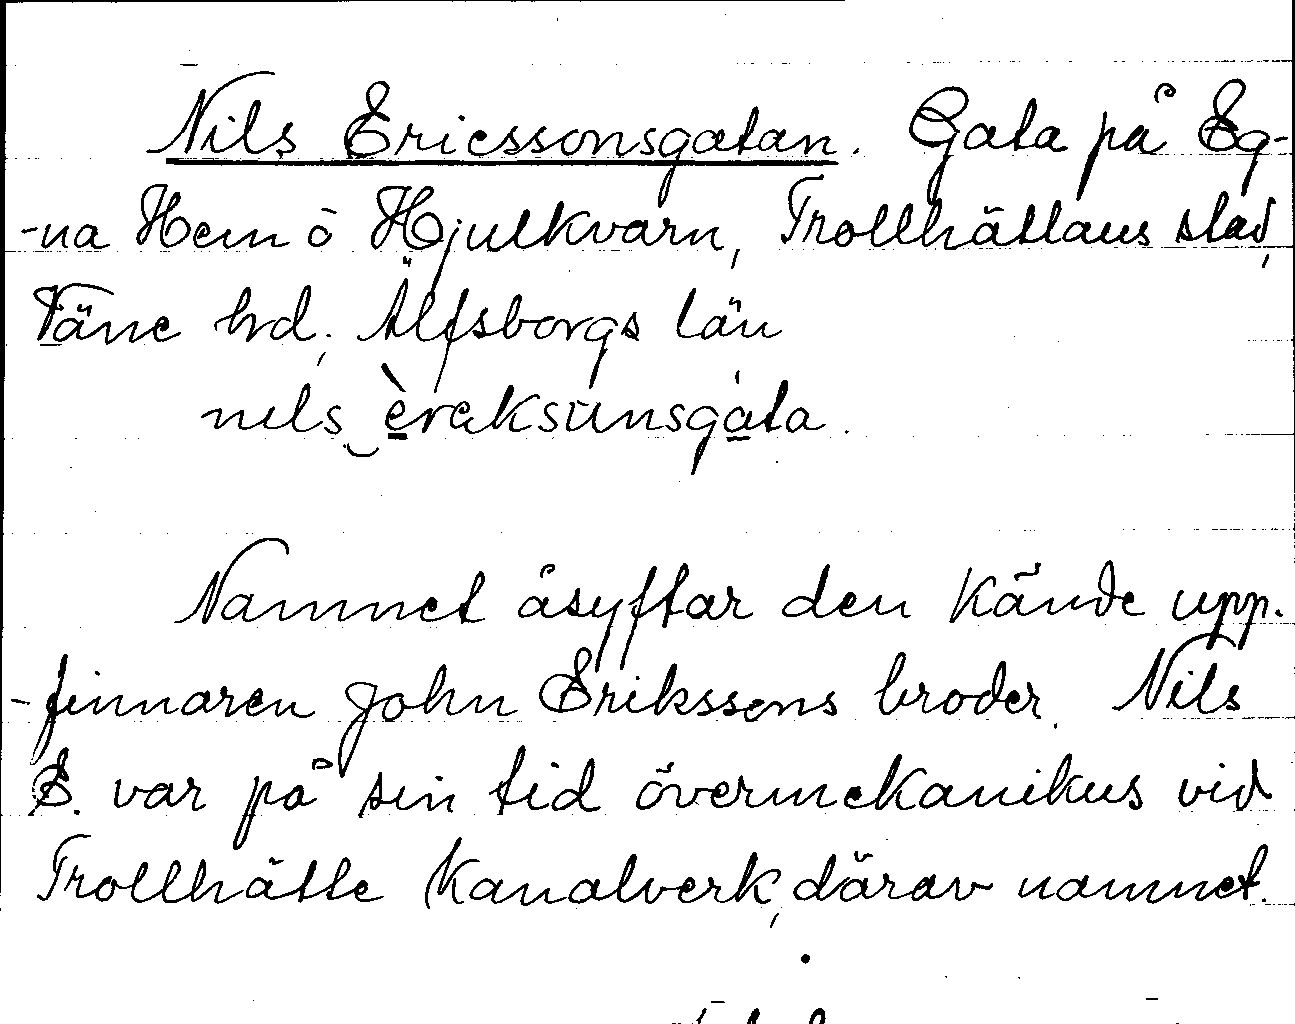 Nils Ericssonsgatan. Gata på Eg-
-na Hem å Hjulkvarn, Trollhättans stad,
Väne hd, Älfsborgs län
nels èreksunsgata.
Namnet åsyftar den kände upp-
-finnaren John Erikssons broder. Nils
E. var på sin tid övermekanikus vid
Trollhätte Kanalverk, därav namnet.